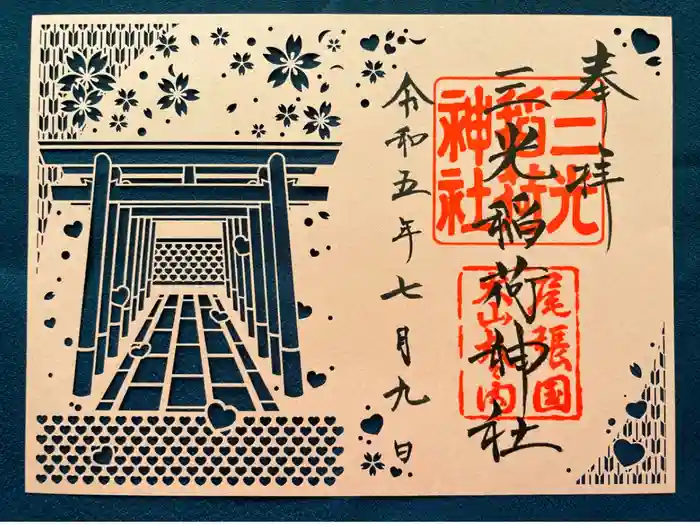 奉拝
三光稲荷神社
令和五年七月九日
三光
稲荷
神社
尾張国
犬山城内